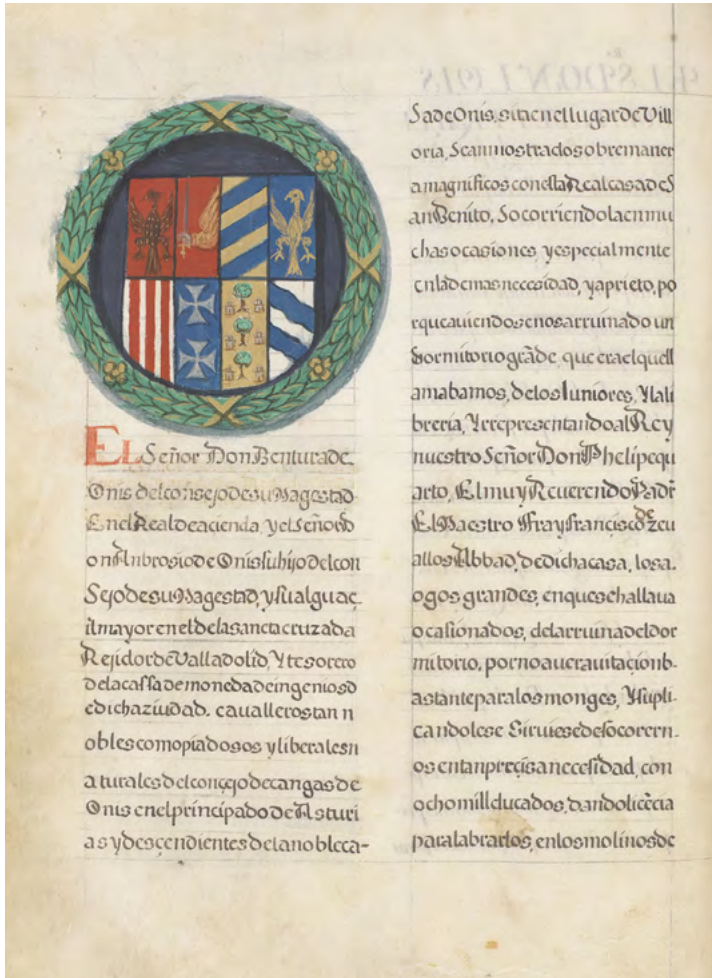 EL Señor Don Benturade
Onis delconsejodesu Magestad
Enel Realdeacienda, yelSeñorD
on AnbrosiodeOnissuhijodelcon
SejodesuMagestad, ysualguac
ilmayoreneldelasanctacruzada
RejidordeValladolid, Ytesorero
delacassademonedadeingeniosd
edichaziudad. cauallerostan n
oblescomopiadosos yliberalesn
aturalesdelconçejodecangasde
Onis enelprincipadodeAsturi
asydesçendientesdelanobleca-
SadeOnis, sitaenellugardeVill
oria, Seanmostradosobremaner
amagnificosconestaRealcasadeS
anBenito, Socorriendolaenmu
chasocasiones, yespecialmente
enlademasnecesidad, yaprieto, po
rqueauiendosenosarruinadoun
Dormitoriogrãde, queeraelquell
amabamos, delosIuniores, Ylali
breria, YrrepresentandoalRey
nuestroSeñorDonPhelipequ
arto, ElmuyReuerendoPadr
ElMaestro FrayFranciscodezeu
allosAbbad, dedichacasa, losa.
ogosgrandes, enquesehallaua
ocasionados, delarruinadeldor
mitorio, pornoauerauitaçionb-
astanteparalosmonges, Ysupli-
candolese Siruiesedesocorern-
osentanpreçisanecesidad, con
ochomillducados, dandoliçẽcia
paralabrarlos, enlosmolinosde